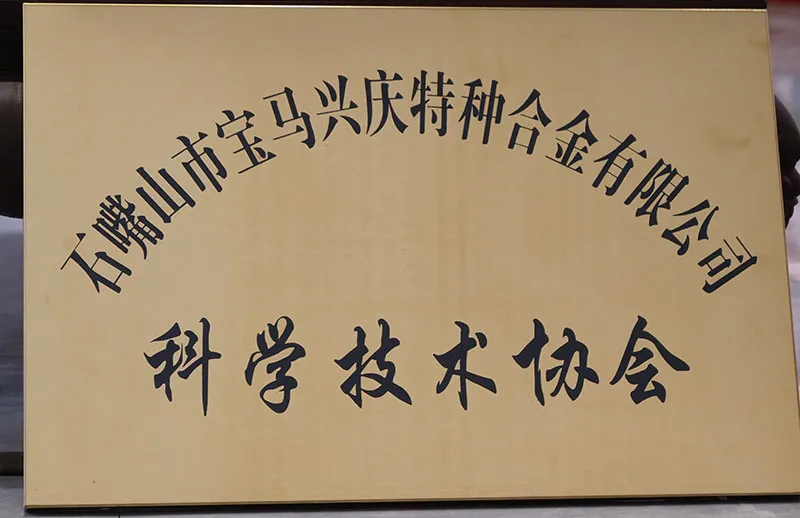 石嘴山市宝马兴庆特种合金有限公司
科学技术协会